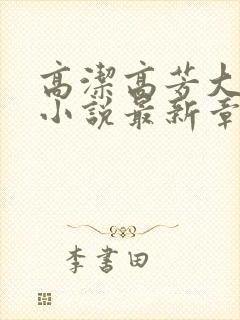 高潔高芳大
小說最新章
李書田